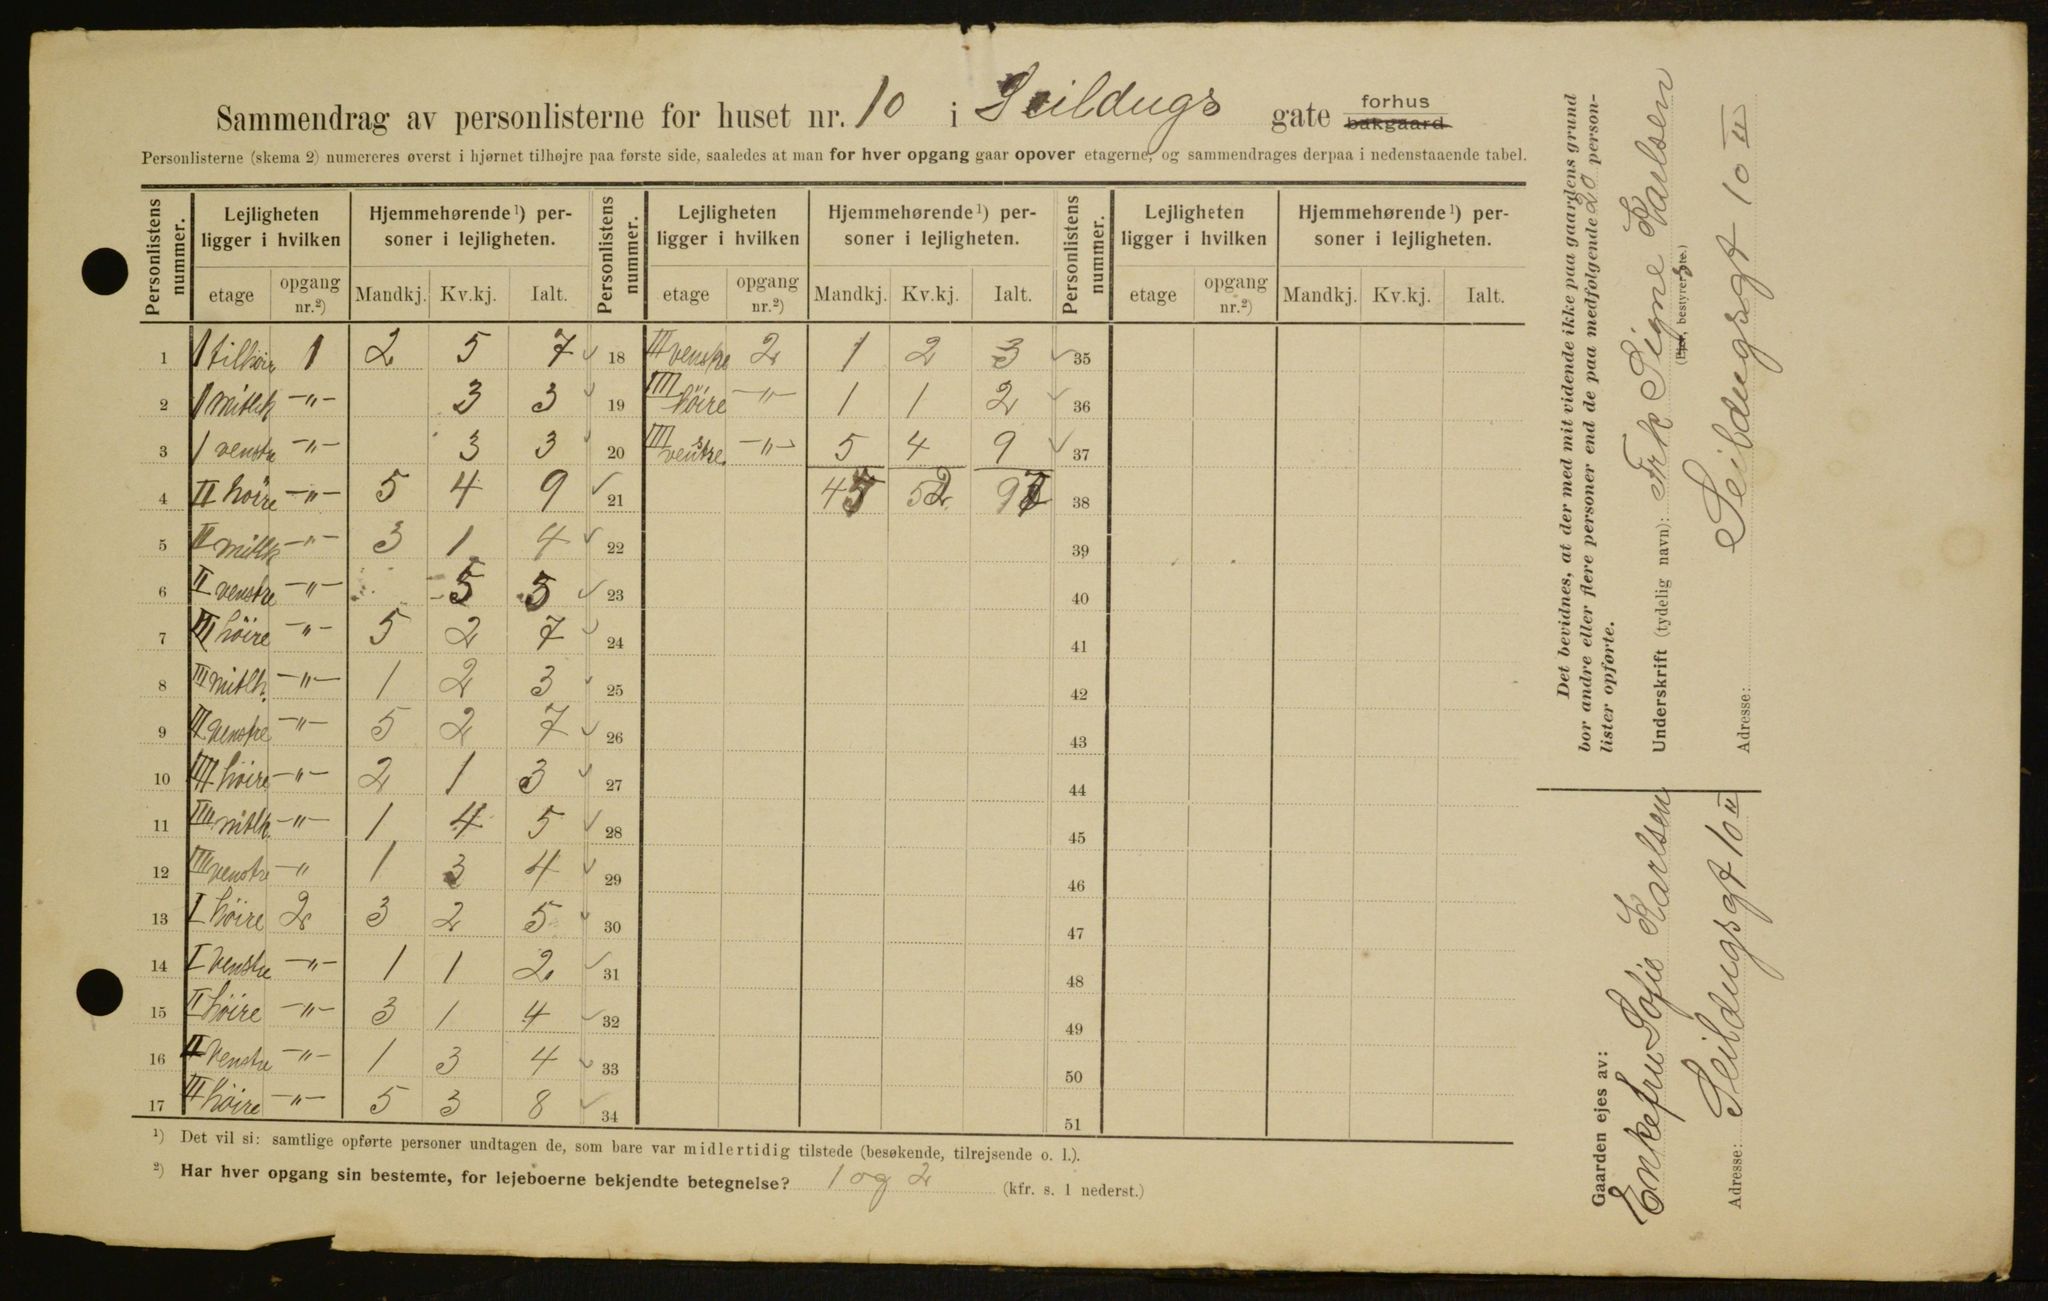 Sammendrag av personlisterne for huset nr. 10 i Seildugs gate forhus bakgaard
Personlisterne (skema 2) numereres øverst i hjørnet tilhøjre paa første side, saaledes at man for hver opgang gaar opover etagerne, og sammendrages derpaa i nedenstaaende tabel.
Personlistens nummer. Lejligheten ligger i hvilken Hjemmehørende 1) personer i lejligheten. Personlistens nummer. Lejligheten ligger i hvilken Hjemmehørende 1) personer i lejligheten. Personlistens nummer. Lejligheten ligger i hvilken Hjemmehørende 1) personer i lejligheten.
etage opgang nr. 2) Mandkj. Kv.kj. Ialt. etage opgang nr. 2) Mandkj. Kv.kj. Ialt. etage opgang nr. 2) Mandkj. Kv.kj. Ialt.
1 1 tilhöire 1 2 5 7 ✓ 18 III venstre 2 1 2 3 ✓ 35
2 1 mitlk -"- 3 3 ✓ 19 IIII höire -"- 1 1 2 ✓ 36
3 1 venstre -"- 3 3 ✓ 20 IIII venstre -"- 5 4 9 ✓ 37
4 II höire -"- 5 4 9 ✓ 21 45 52 97 38
5 II mitlk -"- 3 1 4 ✓ 22 39
6 II venstre -"- 5 5 ✓ 23 40
7 III höire -"- 5 2 7 ✓ 24 41
8 III mitlk. -"- 1 2 3 ✓ 25 42
9 III venstre -"- 5 2 7 ✓ 26 43
10 IIII höire -"- 2 1 3 ✓ 27 44
11 IIII mitlk. -"- 1 4 5 ✓ 28 45
12 IIII venstre -" 1 3 4 ✓ 29 46
13 I höire 2 3 2 5 ✓ 30 47
14 I venstre -"- 1 1 2 ✓ 31 48
15 II höire -"- 3 1 4 ✓ 32 49
16 II venstre -"- 1 3 4 ✓ 33 50
17 III höire -"- 5 3 8 ✓ 34 51
1) Det vil si: samtlige opførte personer undtagen de, som bare var midlertidig tilstede (besøkende, tilrejsende o. l.).
2) Har hver opgang sin bestemte, for lejeboerne bekjendte betegnelse? 1 og 2 (kfr. s. 1 nederst.)
Det bevidnes, at der med mit vidende ikke paa gaardens grund
bor andre eller flere personer end de paa medfølgende 20 person-
lister opførte.
Underskrift (tydelig navn): Frk Signe Karlsen
(Ejer, bestyrerste.)
Adresse: Seildugsgt 10 II
Gaarden ejes av:
Enkefru Sofie Karlsen
Adresse: Seildugsgt 10 II